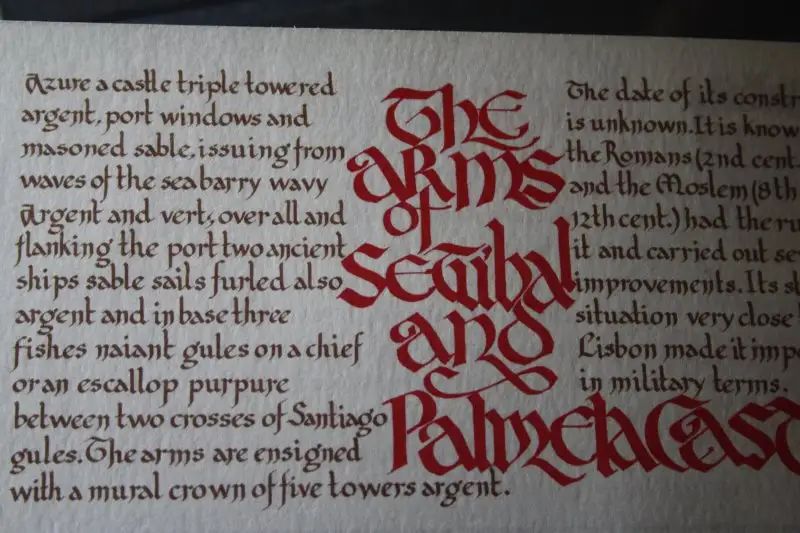 Azure a castle triple towered
argent, port windows and
masoned sable, issuing from
waves of the sea barry wavy
Argent and vert, over all and
flanking the port two ancient
ships sable sails furled also
argent and in base three
fishes naiant gules on a chief
or an escallop purpure
between two crosses of Santiago
gules. The arms are ensigned
with a mural crown of five towers argent.
The
arms
of
Setúbal
and
Palmela Cast
The date of its constr
is unknown. It is know
the Romans (2nd cent.
and the Moslem (8th
12th cent.) had the ru
it and carried out se
improvements. Its st
situation very close
Lisbon made it imp
in military terms.